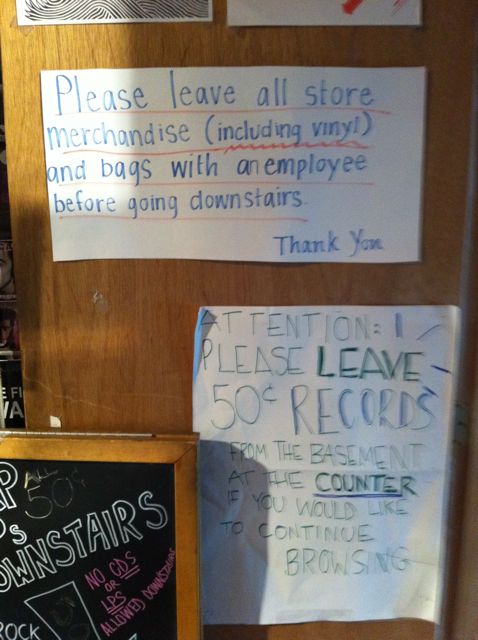 Please leave all store
merchandise (including vinyl)
and bags with an employee
before going downstairs.
Thank You
ATTENTION:
PLEASE LEAVE
50¢ RECORDS
FROM THE BASEMENT
AT THE COUNTER
IF YOU WOULD LIKE
TO CONTINUE
BROWSING
ALL
50¢
OWNSTAIRS
NO CDS
OR
LPS
ALLOWED DOWNSTAIRS
ROCK